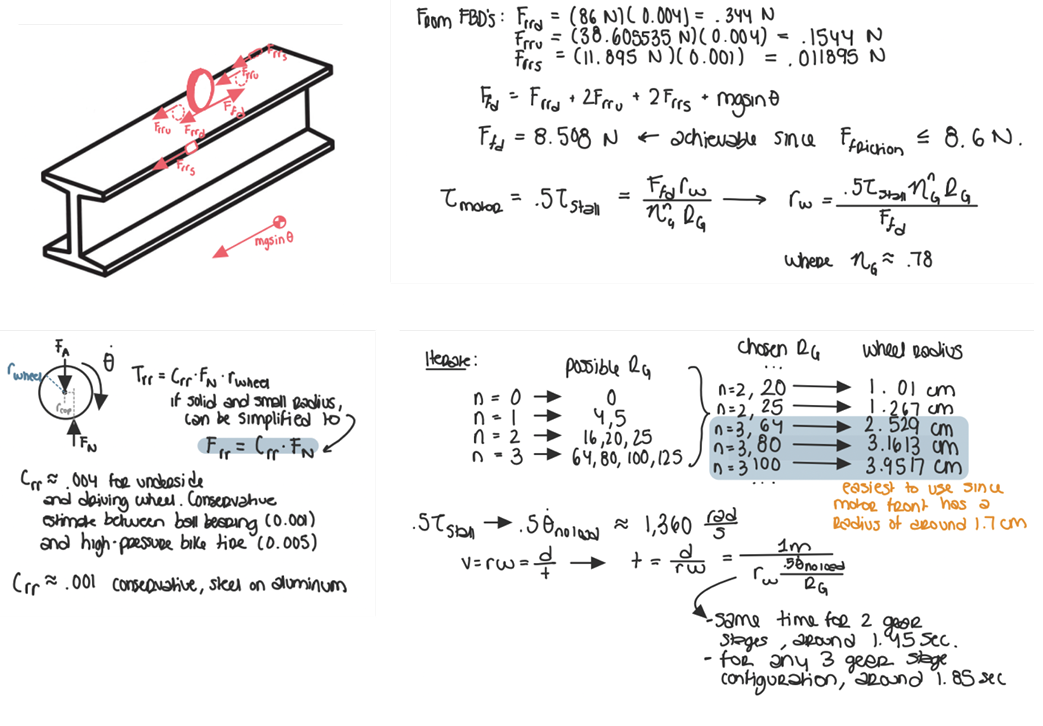 Frrs
Frru
Ffd
Frru
Frrd
Frrs
mgsinθ
From FBD's: Frrd = (86 N)(0.004) = .344 N
Frru = (38.605535 N)(0.004) = .1544 N
Frrs = (11.895 N)(0.001) = .011895 N
Ffd = Frrd + 2Frru + 2Frrs + mgsinθ
Ffd = 8.508 N ← achievable since Ffriction ≤ 8.6 N.
τmotor = .5τstall = Ffd rw / ηG^n RG → rw = .5τstall ηG^n RG / Ffd
where ηG ≈ .78
FA
θ̇
rwheel
FN
Trr = Crr · FN · rwheel
if solid and small radius,
can be simplified to
Frr = Crr · FN
Crr ≈ .004 for underside
and driving wheel. Conservative
estimate between ball bearing (0.001)
and high-pressure bike tire (0.005)
Crr ≈ .001 conservative, steel on aluminum
Iterate:
possible RG
n = 0 → 0
n = 1 → 4,5
n = 2 → 16,20,25
n = 3 → 64,80,100,125
chosen RG wheel radius
...
n=2, 20 → 1.01 cm
n=2, 25 → 1.267 cm
n=3, 64 → 2.529 cm
n=3, 80 → 3.1613 cm
n=3 100 → 3.9517 cm
...
easiest to use since
motor front has a
radius of around 1.7 cm
.5τstall → .5θ̇no load ≈ 1,360 rad/s
v = rω = d/t → t = d/rω = 1m / rw .5θ̇no load/RG
- same time for 2 gear
stages, around 1.45 sec.
- for any 3 gear stage
configuration, around 1.85 sec